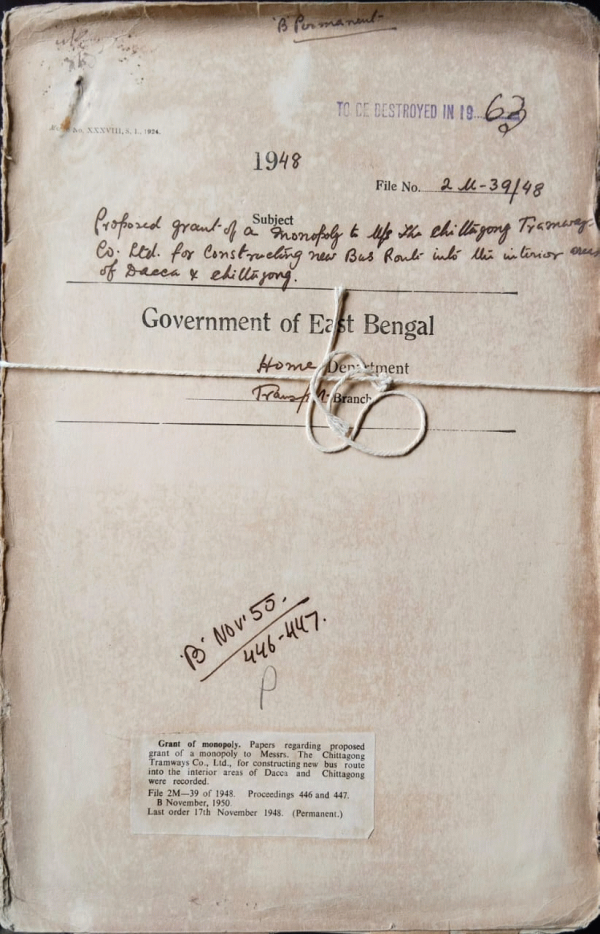 'B Permanent'
TO BE DESTROYED IN 19 63
No. XXXVIII, S. I., 1924.
1948
File No. 2 M-39/48
Subject
Proposed grant of a monopoly to M/s The Chittagong Tramways
Co. Ltd. for Constructing new Bus Route into the interior areas
of Dacca & Chittagong.
Government of East Bengal
Home Department
Transpt. Branch
'B' Nov' 50.
446-447.
P
Grant of monopoly. Papers regarding proposed
grant of a monopoly to Messrs. The Chittagong
Tramways Co., Ltd., for constructing new bus route
into the interior areas of Dacca and Chittagong
were recorded.
File 2M—39 of 1948. Proceedings 446 and 447.
B November, 1950.
Last order 17th November 1948. (Permanent.)